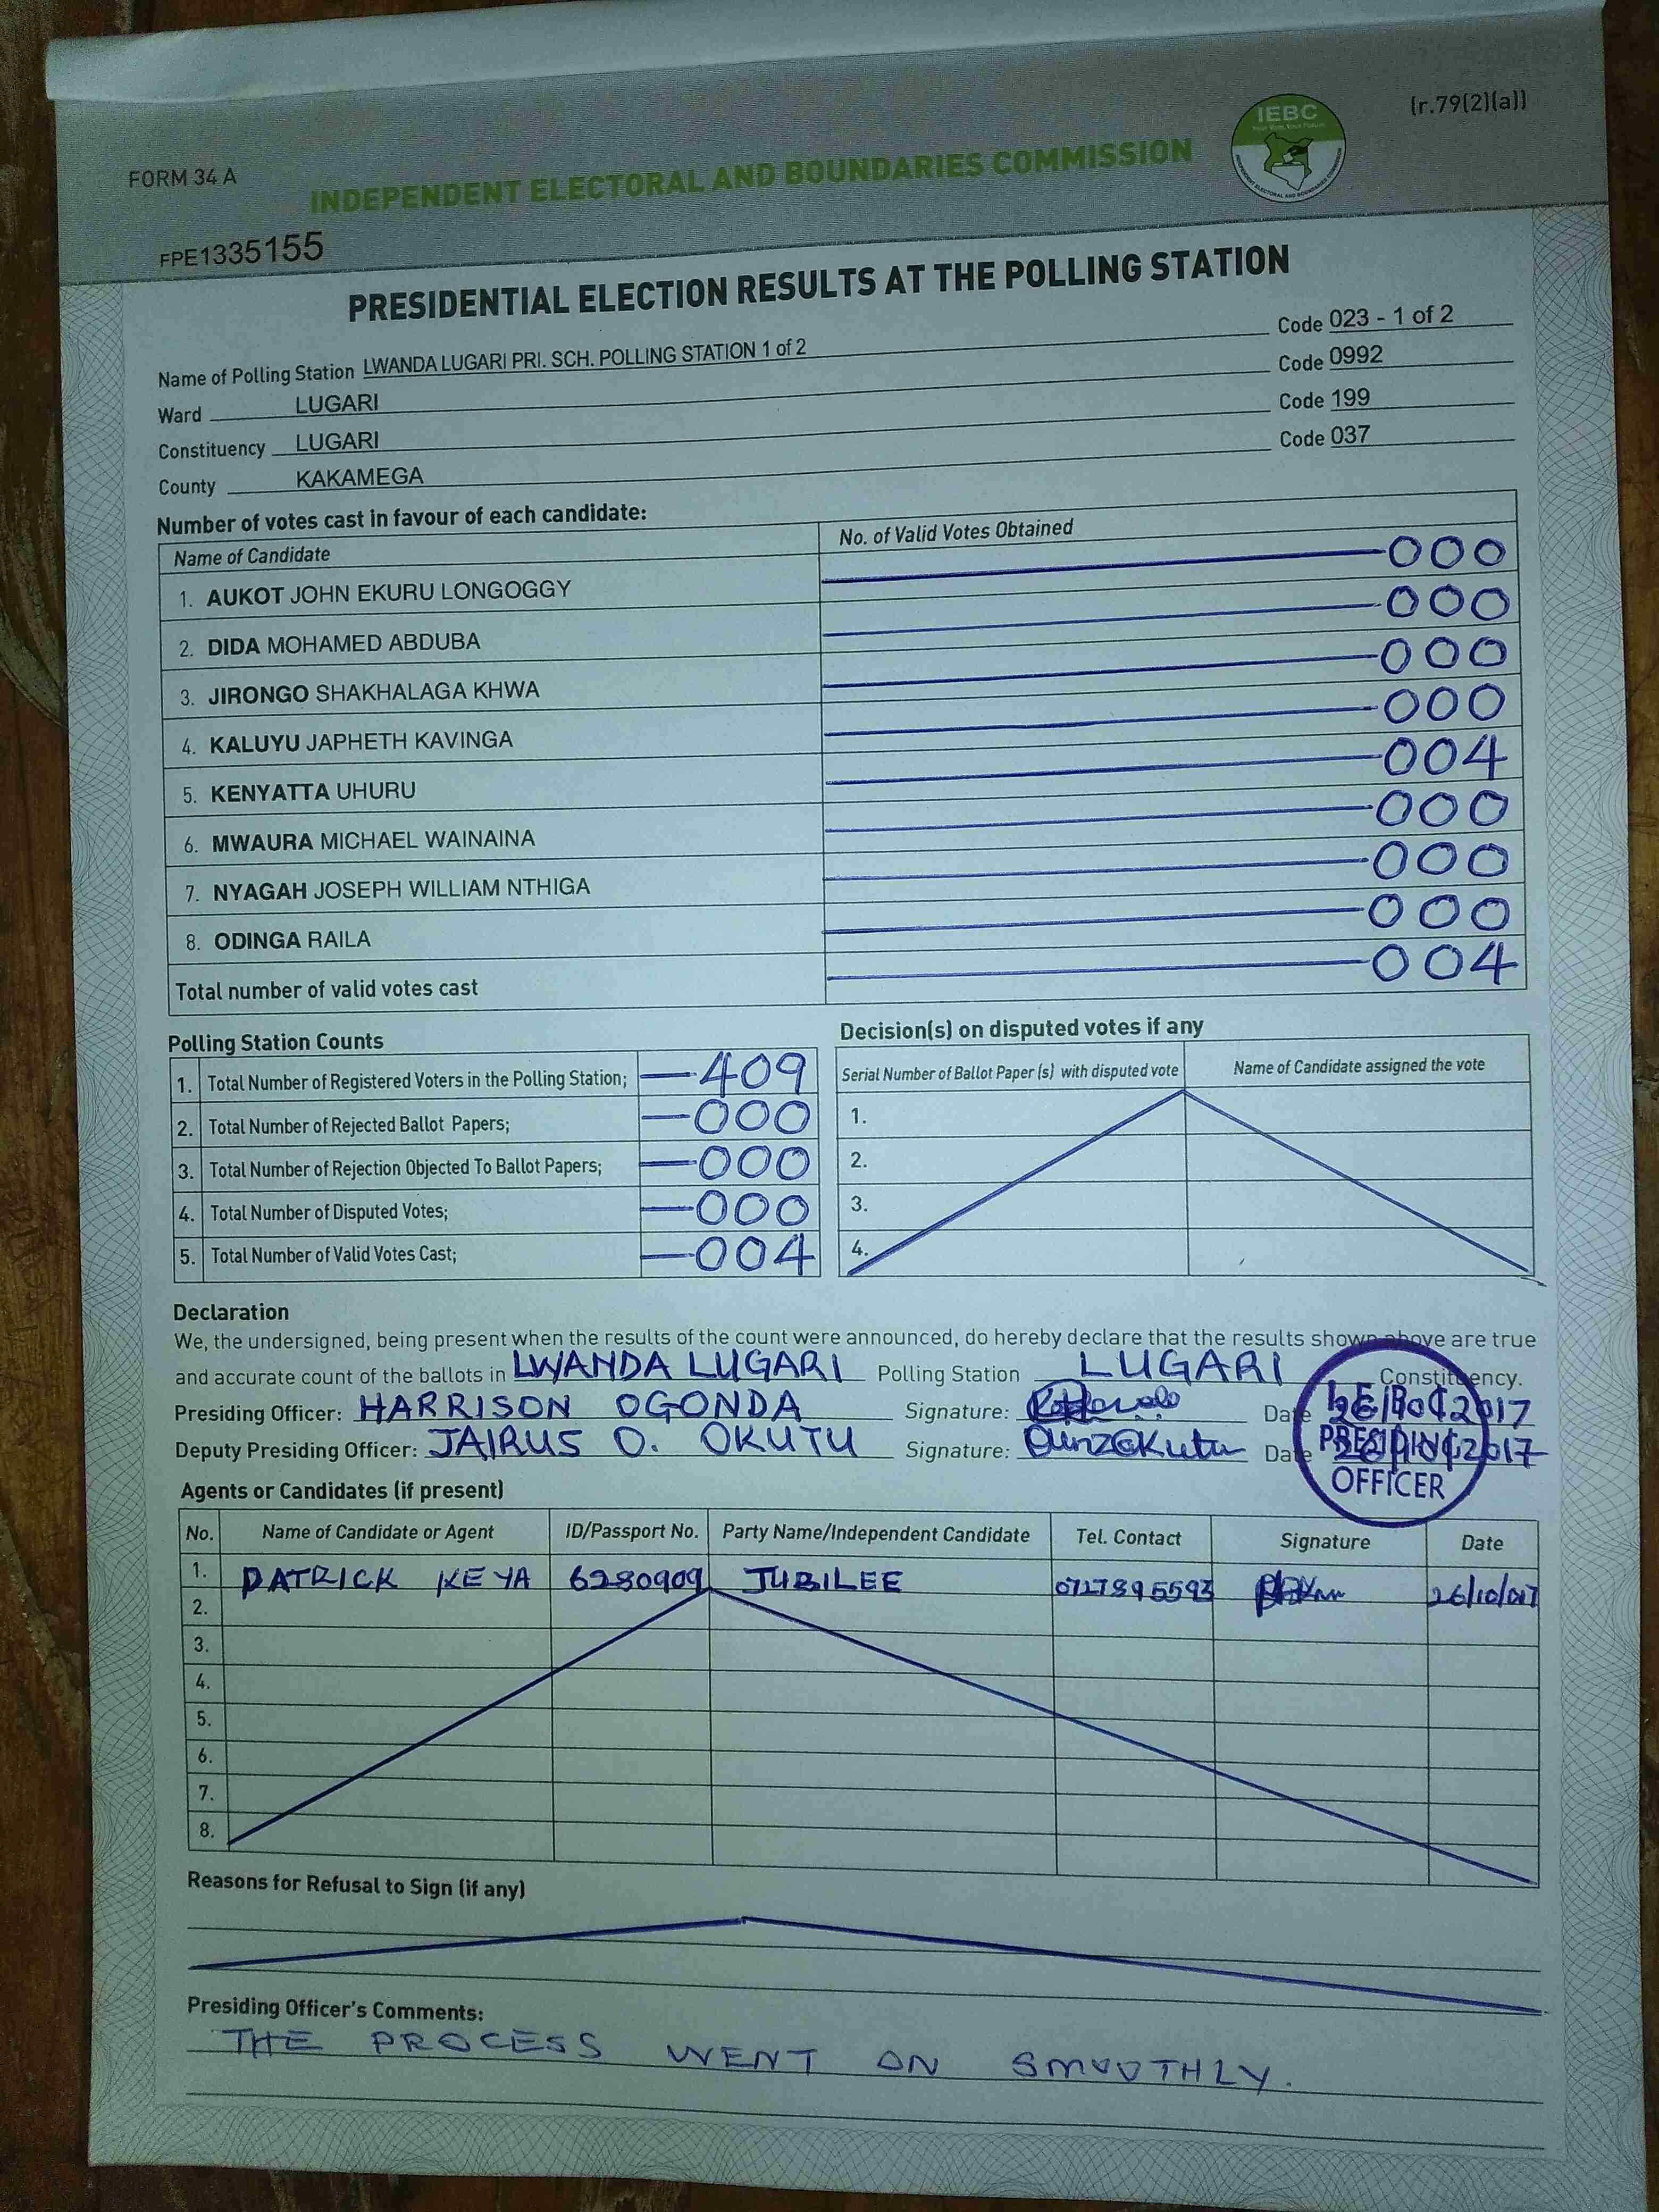 (r.79(2)(a))
IEBC
FORM 34 A
INDEPENDENT ELECTORAL AND BOUNDARIES COMMISSION
FPE1335155
PRESIDENTIAL ELECTION RESULTS AT THE POLLING STATION
Name of Polling Station LWANDA LUGARI PRI. SCH. POLLING STATION 1 of 2 Code 023 - 1 of 2
Ward LUGARI Code 0992
Constituency LUGARI Code 199
County KAKAMEGA Code 037
Number of votes cast in favour of each candidate:
Name of Candidate No. of Valid Votes Obtained
1. AUKOT JOHN EKURU LONGOGGY 000
2. DIDA MOHAMED ABDUBA 000
3. JIRONGO SHAKHALAGA KHWA 000
4. KALUYU JAPHETH KAVINGA 000
5. KENYATTA UHURU 004
6. MWAURA MICHAEL WAINAINA 000
7. NYAGAH JOSEPH WILLIAM NTHIGA 000
8. ODINGA RAILA 000
Total number of valid votes cast 004
Polling Station Counts
1. Total Number of Registered Voters in the Polling Station; 409
2. Total Number of Rejected Ballot Papers; 000
3. Total Number of Rejection Objected To Ballot Papers; 000
4. Total Number of Disputed Votes; 000
5. Total Number of Valid Votes Cast; 004
Decision(s) on disputed votes if any
Serial Number of Ballot Paper (s) with disputed vote Name of Candidate assigned the vote
1.
2.
3.
4.
Declaration
We, the undersigned, being present when the results of the count were announced, do hereby declare that the results shown above are true
and accurate count of the ballots in LWANDA LUGARI Polling Station LUGARI Constituency.
Presiding Officer: HARRISON OGONDA Signature: Date 26/10/2017
Deputy Presiding Officer: JAIRUS O. OKUTU Signature: Date 26/10/2017
IEBC
PRESIDING
OFFICER
Agents or Candidates (if present)
No. Name of Candidate or Agent ID/Passport No. Party Name/Independent Candidate Tel. Contact Signature Date
1. PATRICK KEYA 6280909 JUBILEE 0727895593 26/10/2017
2.
3.
4.
5.
6.
7.
8.
Reasons for Refusal to Sign (if any)
Presiding Officer's Comments:
THE PROCESS WENT ON SMOOTHLY.